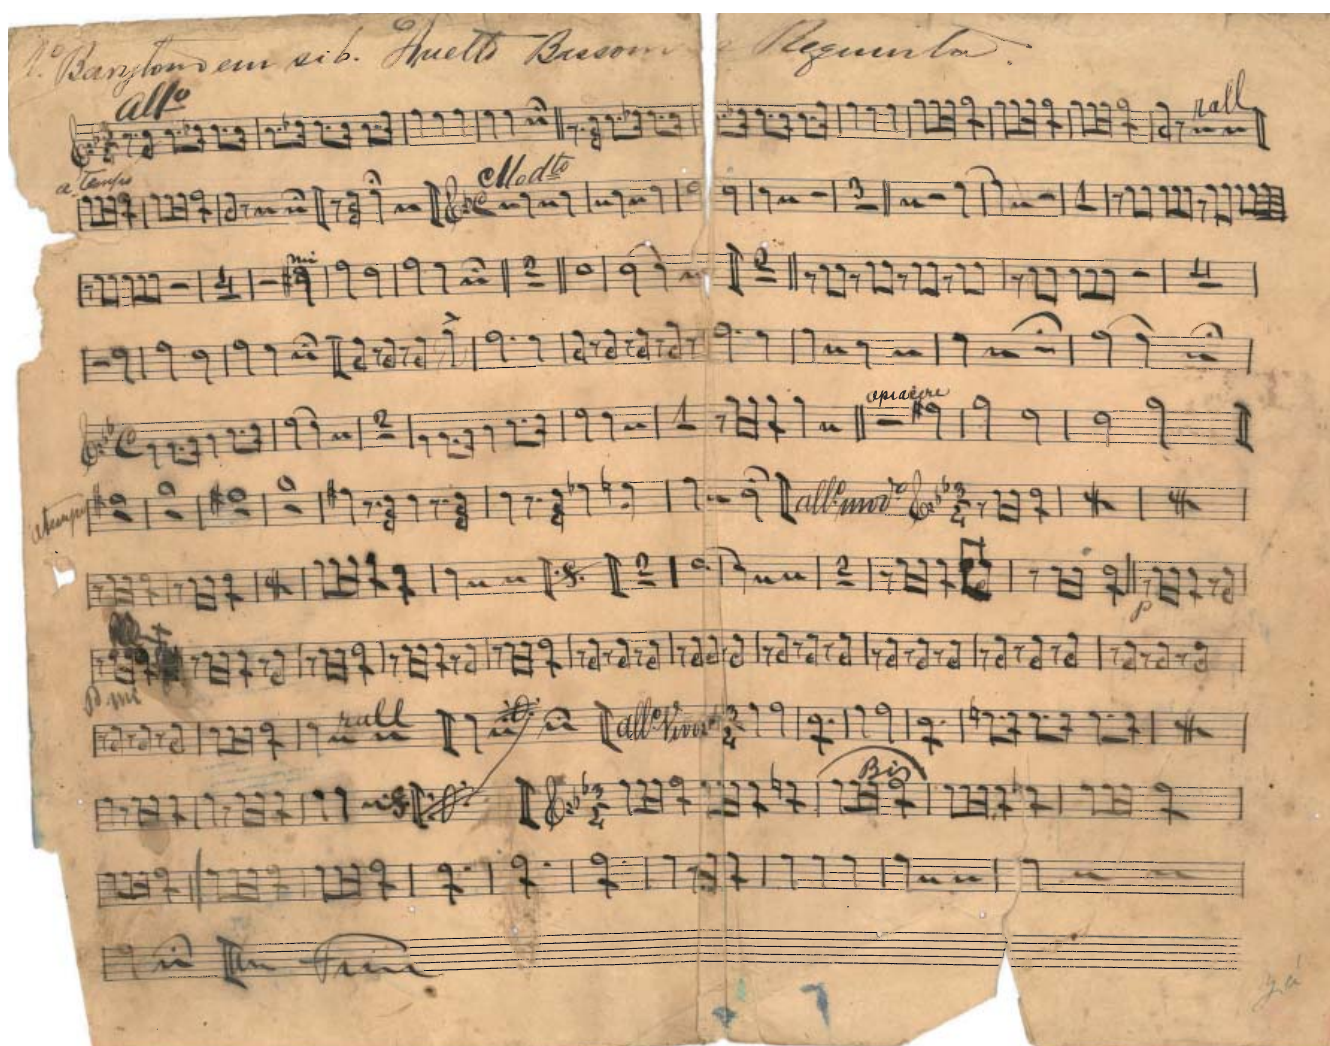 1º Barytono em sib. Duetto Bassom e Requinta.
Allº
rall
a tempo
Modto
3
1
mi
4
2
2
4
2
1
apiacere
a tempo
allº modº
3
4
2
2
p
rall
allº Vivo
3
4
Bis
3
4
Fim